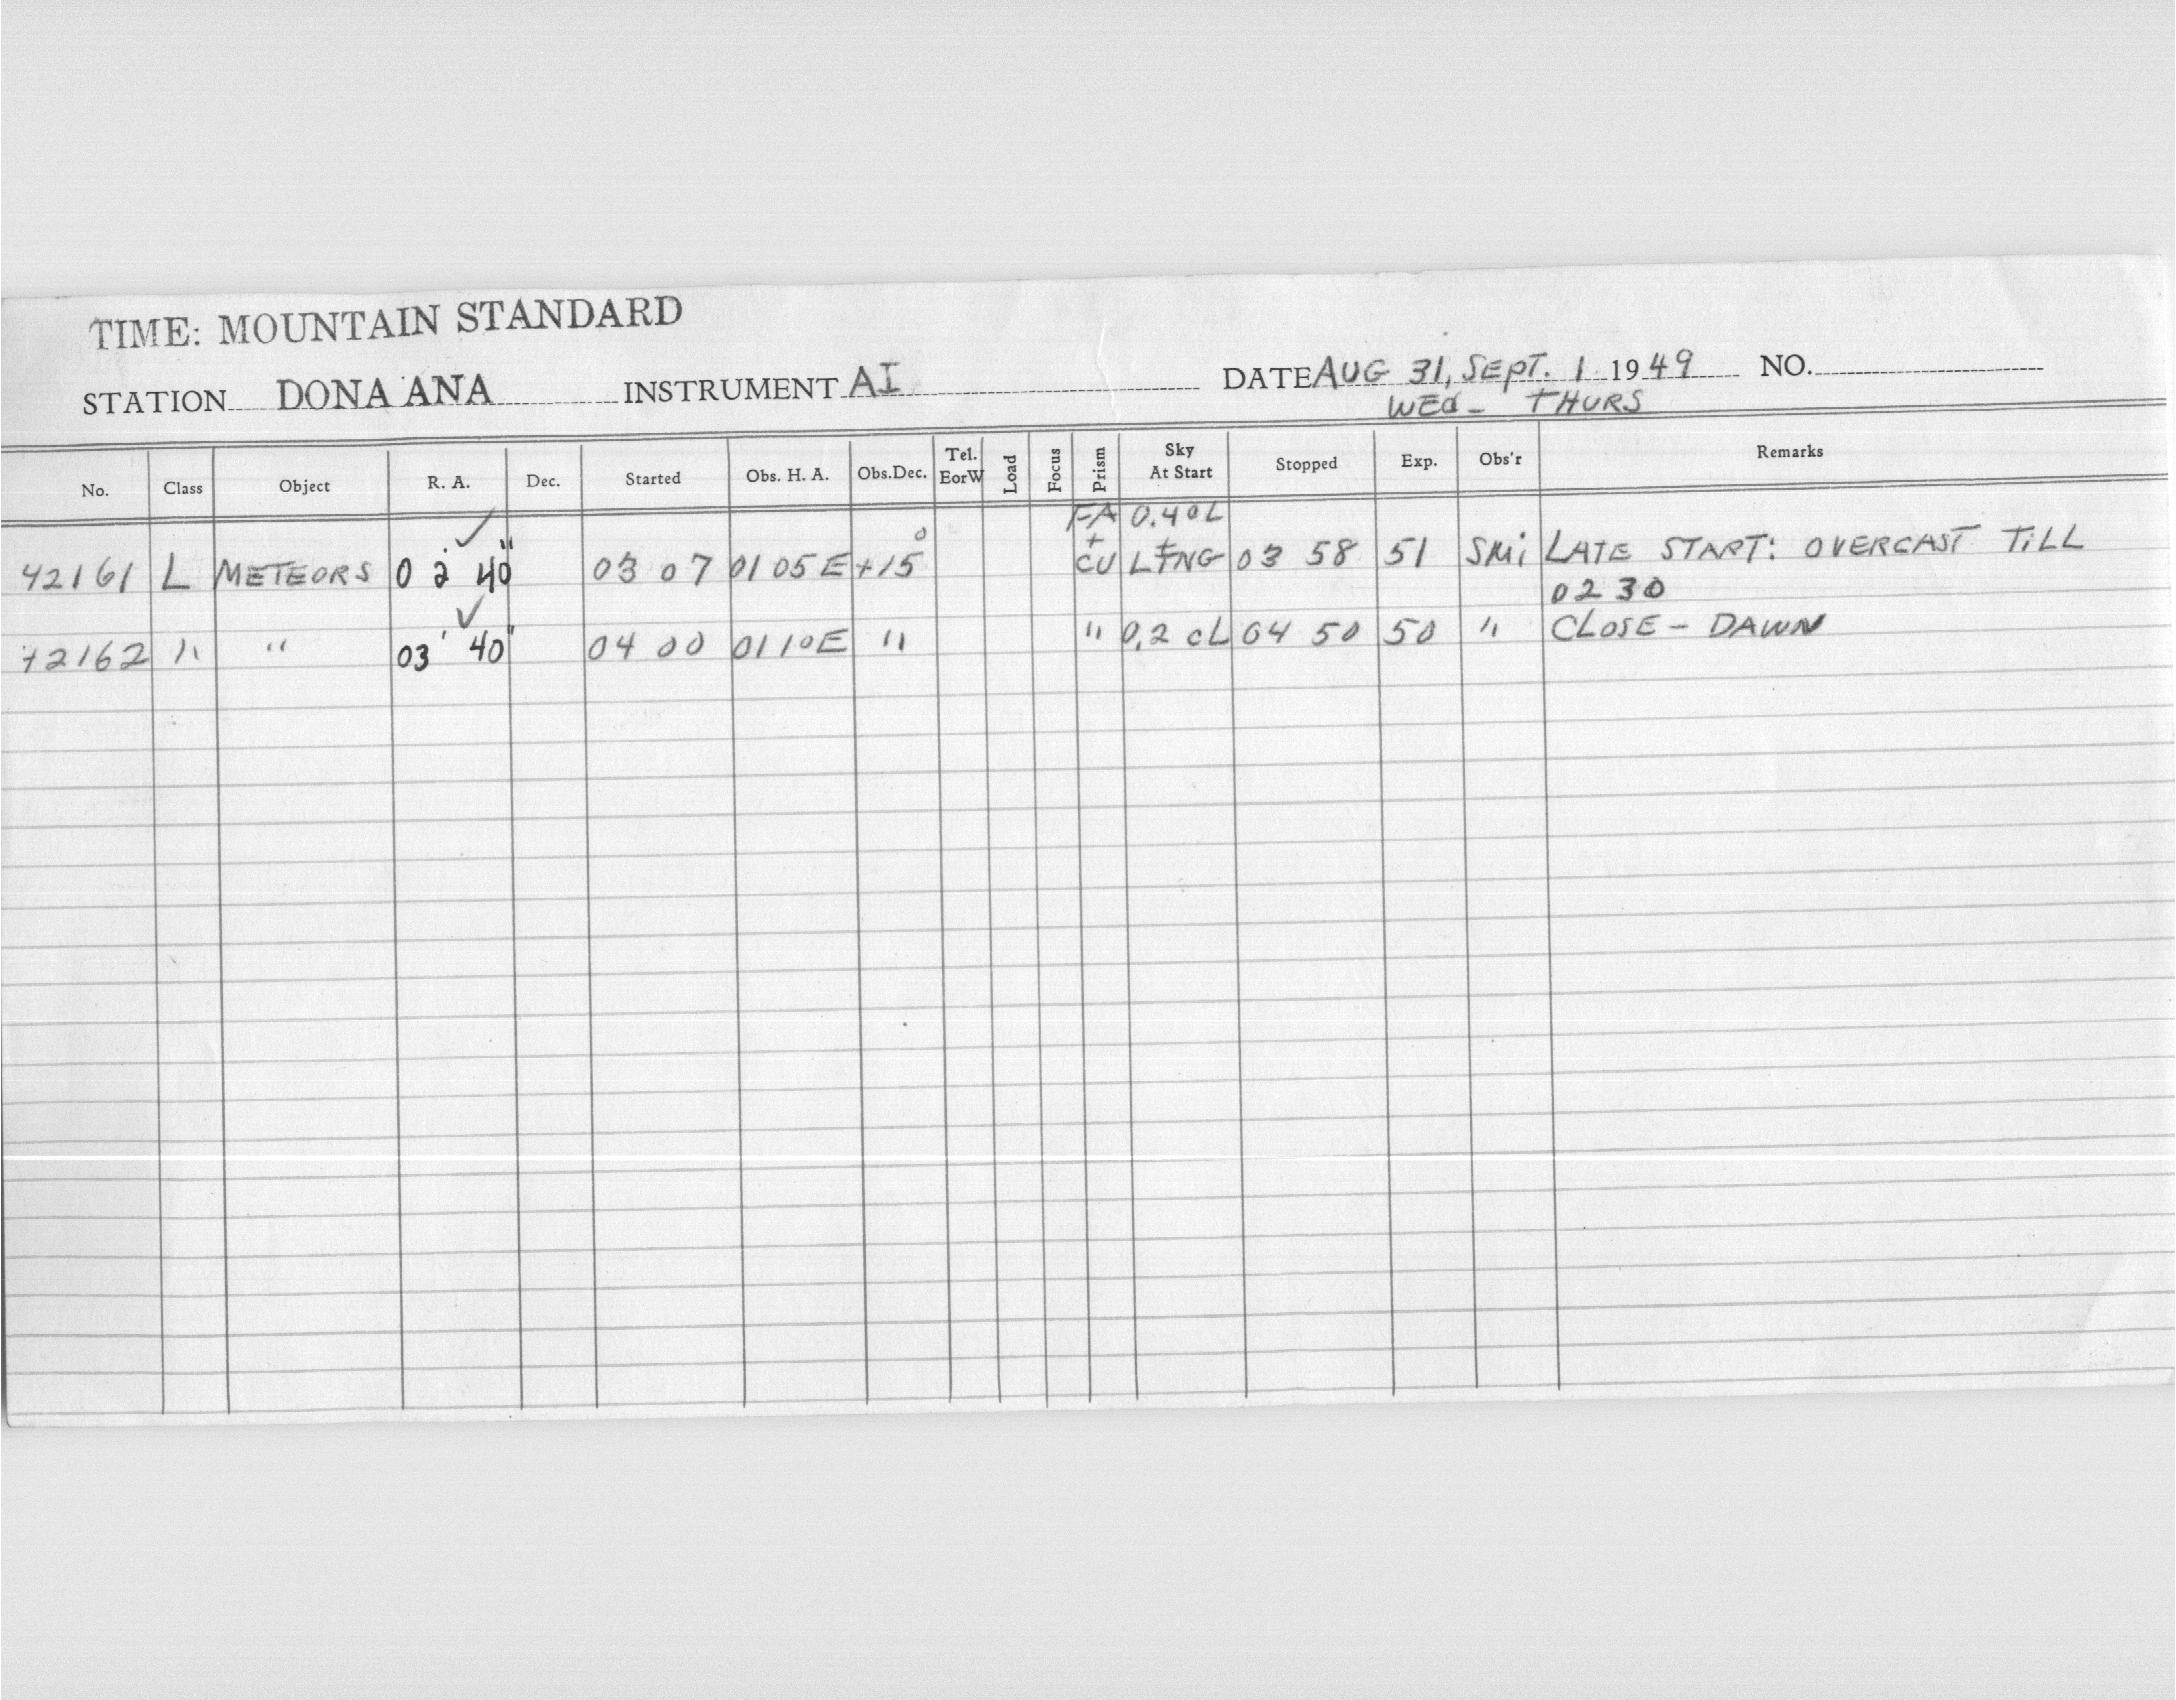 TIME: MOUNTAIN STANDARD
STATION DONA ANA INSTRUMENT AI DATE AUG 31, SEPT. 1 1949 NO.
WED - THURS
No. Class Object R. A. Dec. Started Obs. H. A. Obs.Dec. Tel. EorW Load Focus Prism Sky At Start Stopped Exp. Obs'r Remarks
FA 0.4 CL
42161 L METEORS 02' 40" 03 07 01 05 E +15° + CU + LTNG 03 58 51 SMi LATE START: OVERCAST TILL
0230
42162 " " 03' 40" 04 00 01 10 E " " 0.2 CL 04 50 50 " CLOSE - DAWN